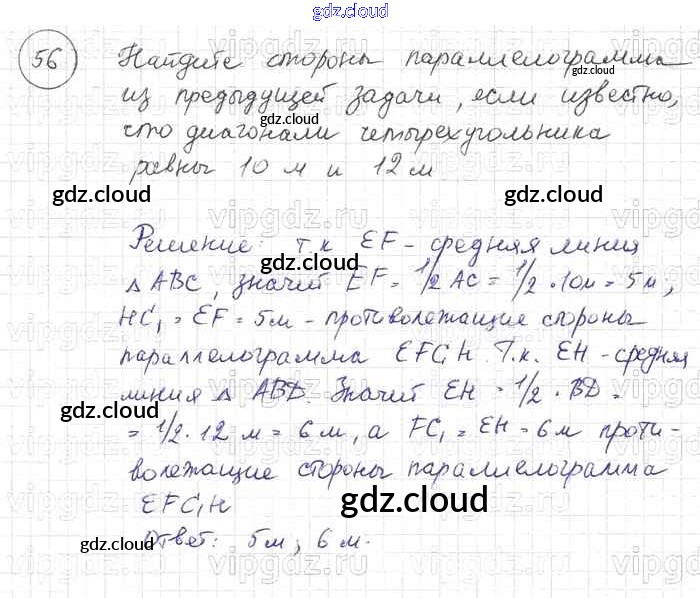 gdz.cloud
56 Найдите стороны параллелограмма
из предыдущей задачи, если известно,
что диагонали четырехугольника
равны 10 м и 12 м
gdz.cloud
Решение: т.к EF - средняя линия
△ ABC, значит EF = 1/2 AC = 1/2 · 10м = 5 м,
HC₁ = EF = 5м - противолежащие стороны
параллелограмма EFC₁H. Т.к. EH - средняя
линия △ ABD. Значит EH = 1/2 · BD =
= 1/2 · 12 м = 6 м, а FC₁ = EH = 6 м проти-
волежащие стороны параллелограмма
EFC₁H
Ответ: 5м; 6 м.
gdz.cloud